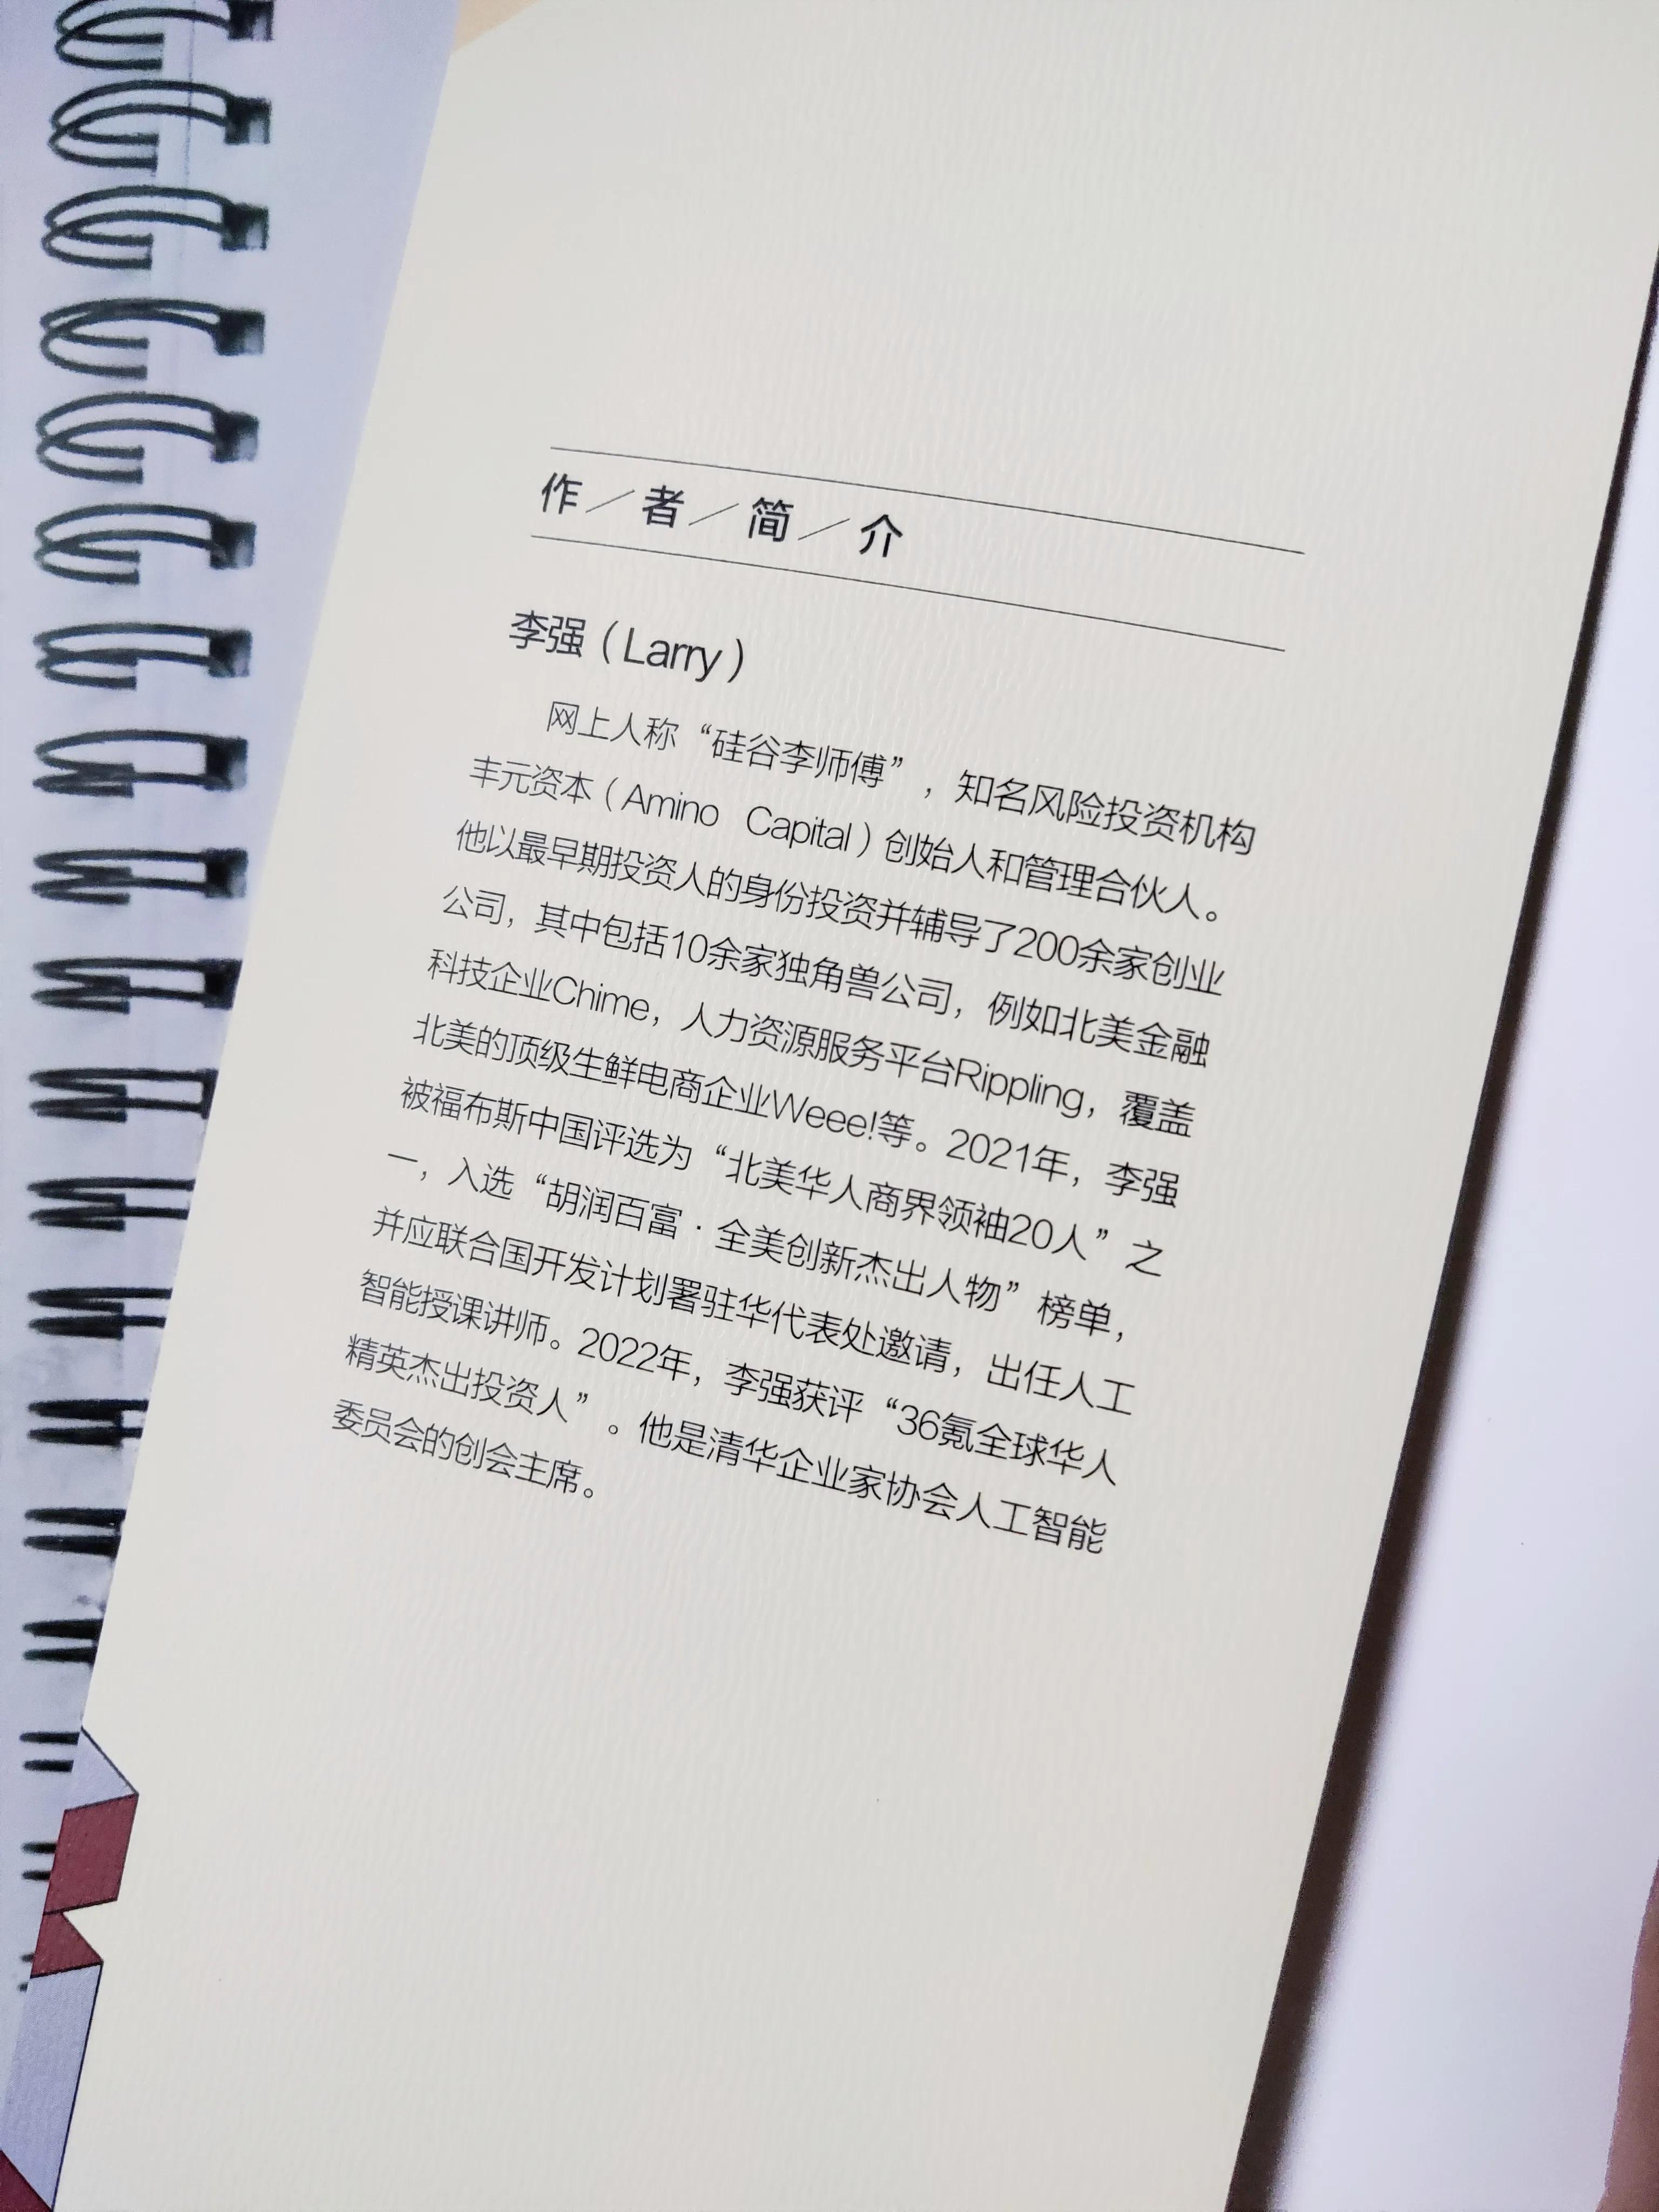 作／者／简／介
李强（Larry）
网上人称“硅谷李师傅”，知名风险投资机构
丰元资本（Amino Capital）创始人和管理合伙人。
他以最早期投资人的身份投资并辅导了200余家创业
公司，其中包括10余家独角兽公司，例如北美金融
科技企业Chime，人力资源服务平台Rippling，覆盖
北美的顶级生鲜电商企业Weee!等。2021年，李强
被福布斯中国评选为“北美华人商界领袖20人”之
一，入选“胡润百富·全美创新杰出人物”榜单，
并应联合国开发计划署驻华代表处邀请，出任人工
智能授课讲师。2022年，李强获评“36氪全球华人
精英杰出投资人”。他是清华企业家协会人工智能
委员会的创会主席。